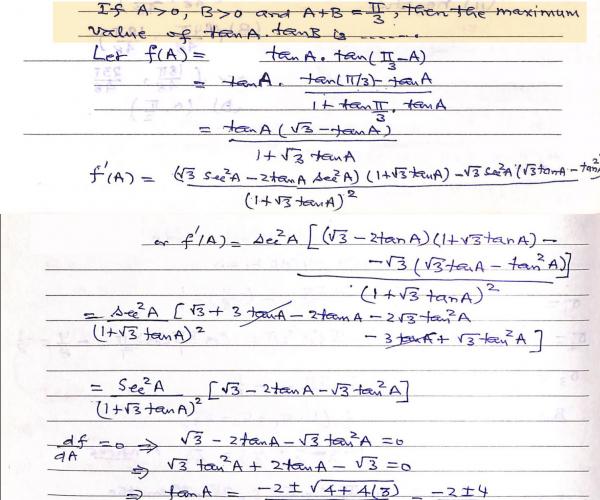 If A>0, B>0 and A+B = π/3, then the maximum
value of tanA. tanB is .......
Let f(A) = tanA. tan(π/3 - A)
= tanA. (tan(π/3) - tanA)/(1 + tan π/3 . tanA)
= tanA(√3 - tanA)/(1 + √3 tanA)
f'(A) = (√3 sec²A - 2tanA sec²A)(1+√3tanA) - √3 sec²A (√3tanA - tan²
(1+√3 tanA)²
or f'(A) = sec²A [(√3 - 2tanA)(1+√3tanA) -
- √3 (√3tanA - tan²A)]
(1+√3 tanA)²
= sec²A/(1+√3 tanA)² [√3 + 3 tanA - 2tanA - 2√3 tan²A
- 3 tanA + √3 tan²A]
= Sec²A/(1+√3 tanA)² [√3 - 2tanA - √3 tan²A]
df/dA = 0 ⇒ √3 - 2tanA - √3 tan²A = 0
⇒ √3 tan²A + 2tanA - √3 = 0
⇒ tanA = -2 ± √4 + 4(3) = -2 ± 4